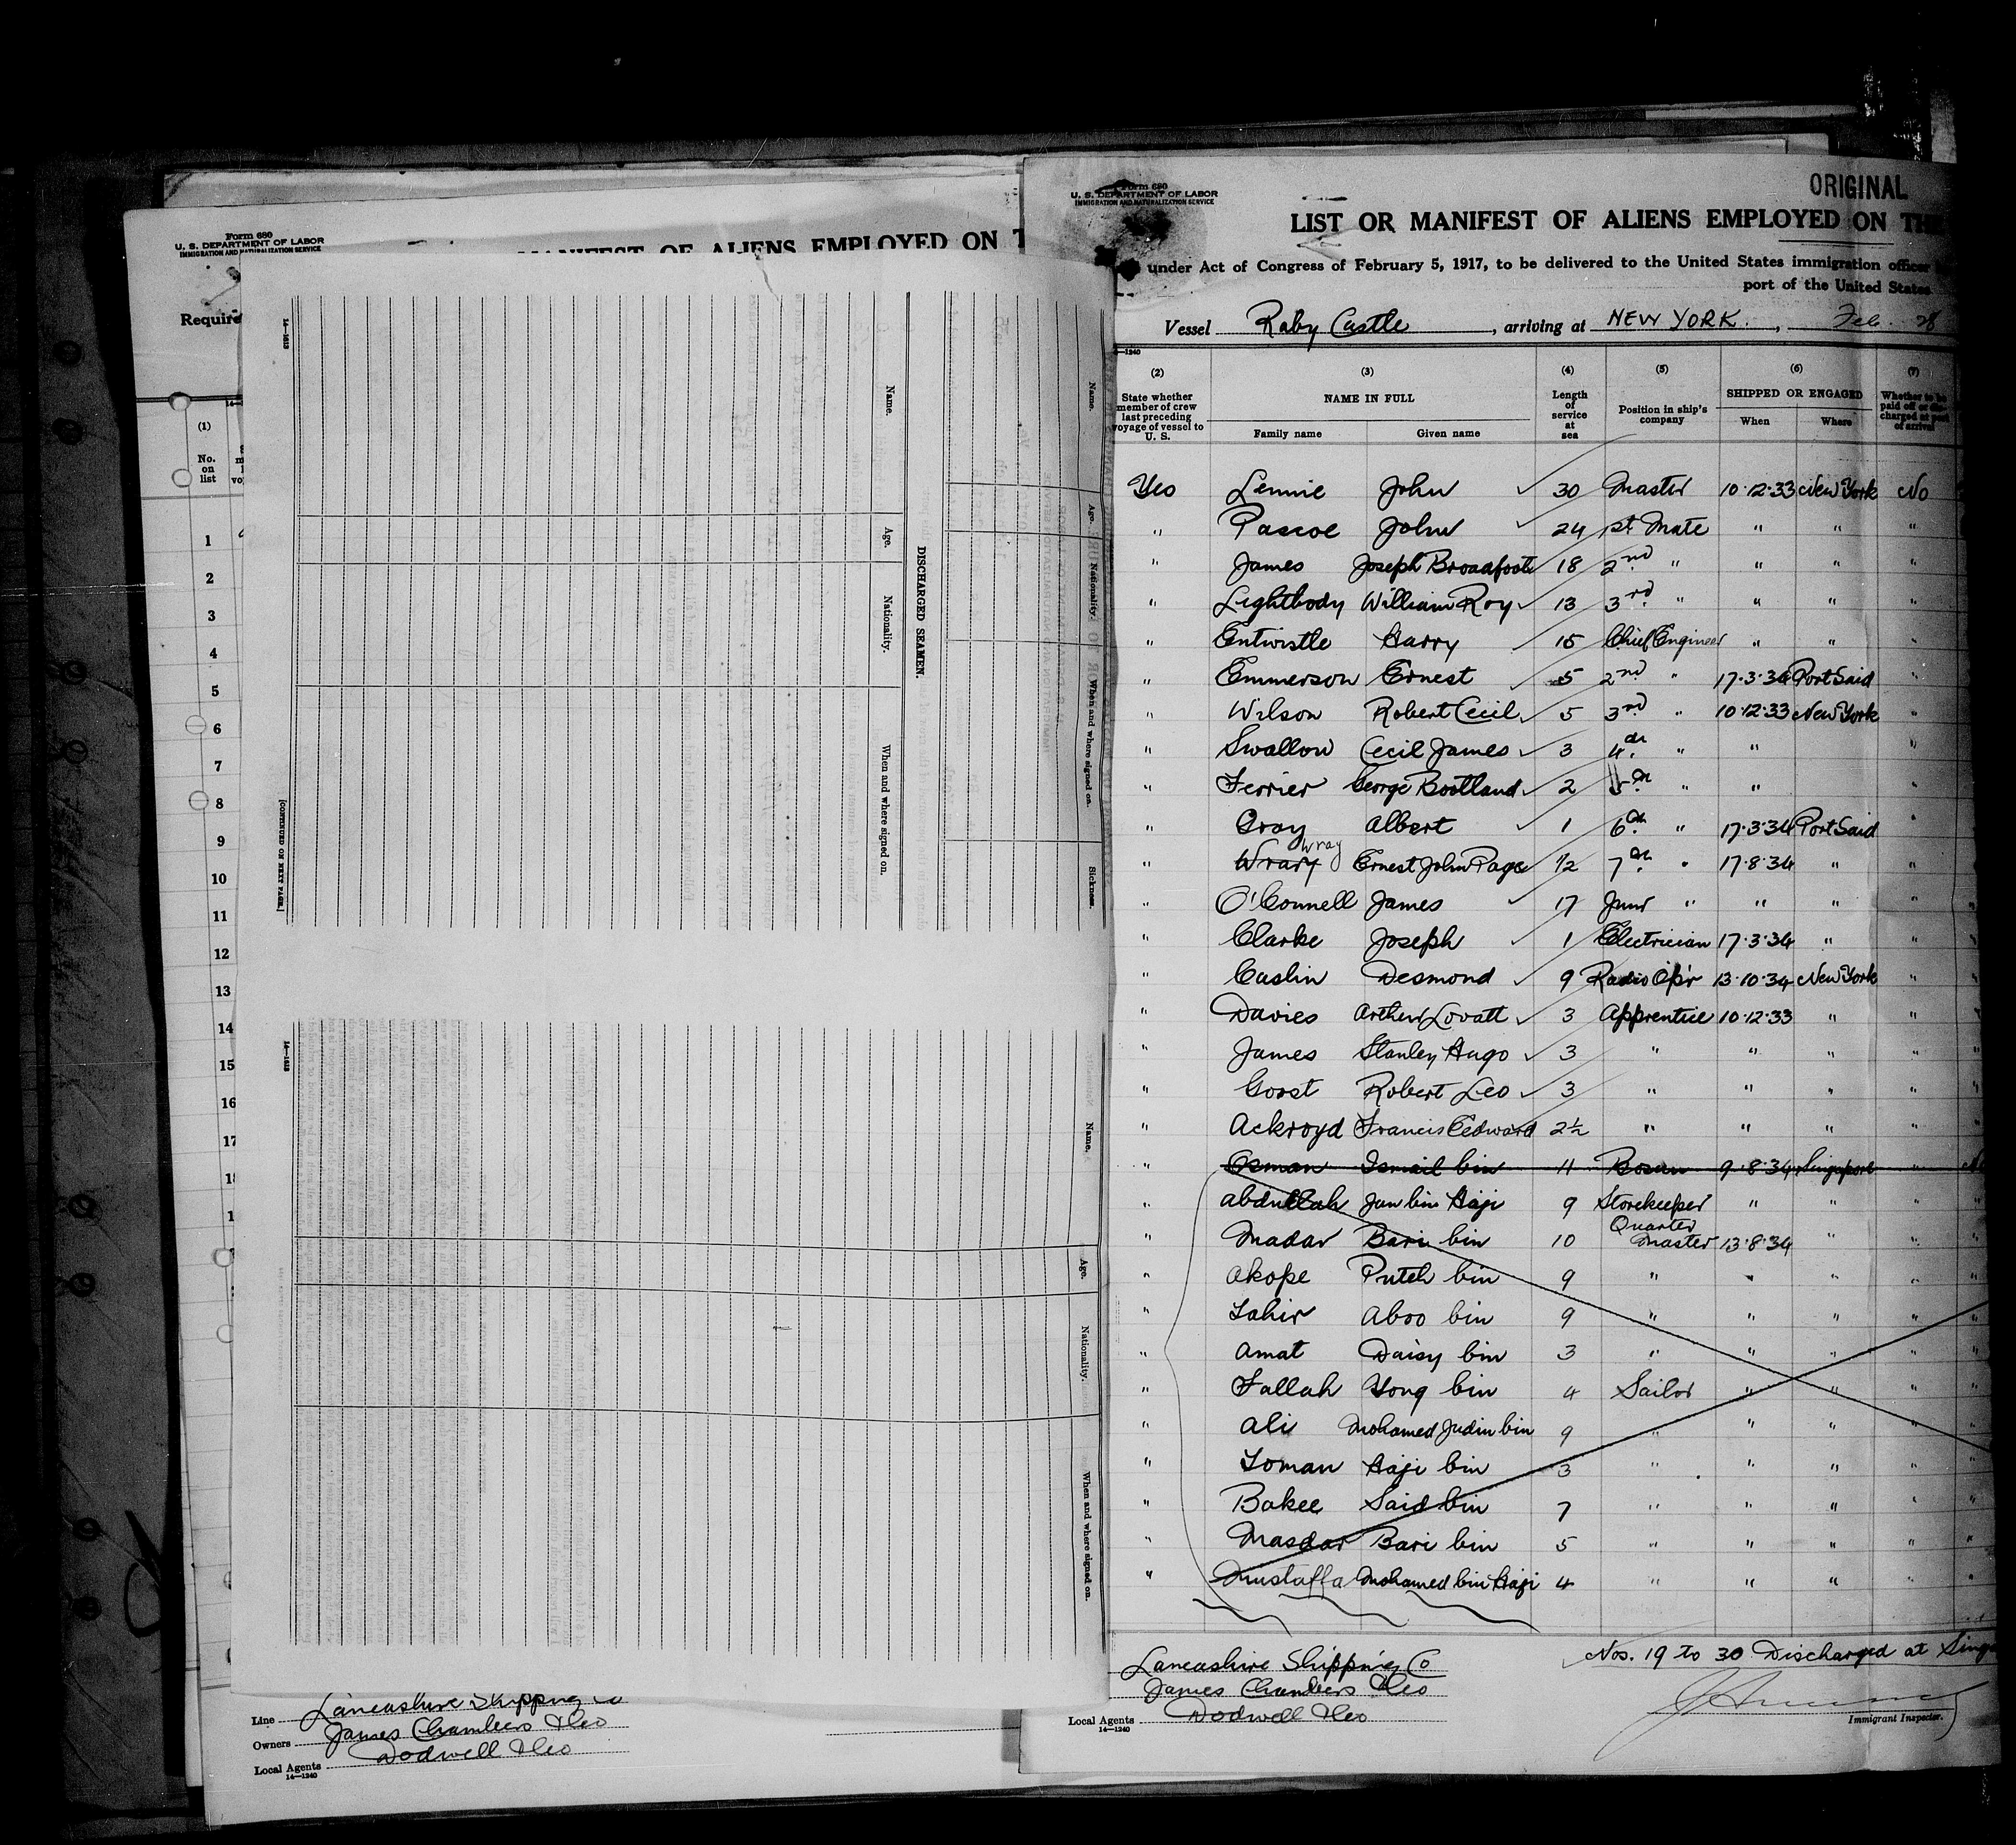 Form 680
U. S. DEPARTMENT OF LABOR
IMMIGRATION AND NATURALIZATION SERVICE
MANIFEST OF ALIENS EMPLOYED ON
Require
(1)
No.
on
list
1
2
3
4
5
6
7
8
9
10
11
12
13
14
15
16
17
14—1613
Name.
Age.
Nationality.
When and where signed on.
[CONTINUED ON NEXT PAGE.]
DISCHARGED SEAMEN.
Name.
Age.
Nationality.
When and where signed on.
Sickness.
14—1613
Name.
Age.
Nationality.
When and where signed on.
Line Lancashire Shipping Co
Owners James Chambers & Co
Local Agents Dodwell & Co
14—1240
Form 680
U. S. DEPARTMENT OF LABOR
IMMIGRATION AND NATURALIZATION SERVICE
ORIGINAL
LIST OR MANIFEST OF ALIENS EMPLOYED ON THE
under Act of Congress of February 5, 1917, to be delivered to the United States immigration officer
port of the United States
Vessel Raby Castle, arriving at NEW YORK., Feb. 28
—1240
(2) (3) (4) (5) (6) (7)
State whether member of crew last preceding voyage of vessel to U. S. NAME IN FULL Length of service at sea Position in ship's company SHIPPED OR ENGAGED Whether to be paid off or charged at port of arrival
Family name Given name When Where
Yes Lennie John 30 Master 10.12.33 New York No
" Pascoe John 24 1st Mate " " "
" James Joseph Broadfoot 18 2nd " " " "
" Lightbody William Roy 13 3rd " " " "
" Entwistle Harry 15 Chief Engineer " " "
" Emmerson Ernest 5 2nd " 17.3.34 Port Said "
" Wilson Robert Cecil 5 3rd " 10.12.33 New York "
" Swallow Cecil James 3 4th " " "
" Ferrier George Bootland 2 5th " "
" Gray Albert 1 6th " 17.3.34 Port Said "
" Wrary Wray Ernest John Page 1/2 7th " 17.8.34 " "
" O'Connell James 17 Junr " " " "
" Clarke Joseph 1 Electrician 17.3.34 " "
" Caslin Desmond 9 Radio Op'r 13.10.34 New York "
" Davies Arthur Lovatt 3 Apprentice 10.12.33 " "
" James Stanley Hugo 3 " " " "
" Goost Robert Leo 3 " " " "
" Ackroyd Francis Edward 2½ " " " "
" Osman Ismail bin 11 Bosun 9.8.34 Singapore "
" Abdullah Jan bin Haji 9 Storekeeper " " "
" Madar Bari bin 10 Quarter Master 13.8.34 " "
" Akope Puteh bin 9 " " " "
" Tahir Aboo bin 9 " " " "
" Amat Daisy bin 3 " " " "
" Fallah Yong bin 4 Sailor " " "
" Ali Mohamed Judin bin 9 " " " "
" Toman Haji bin 3 " " " "
" Bakee Said bin 7 " " " "
" Masdar Bari bin 5 " " " "
" Mustaffa Mohamed bin Haji 4 " " " "
Lancashire Shipp'ng Co
James Chambers & Co
Local Agents Dodwell & Co
14—1240
Nos. 19 to 30 Discharged at
Immigrant Inspector.